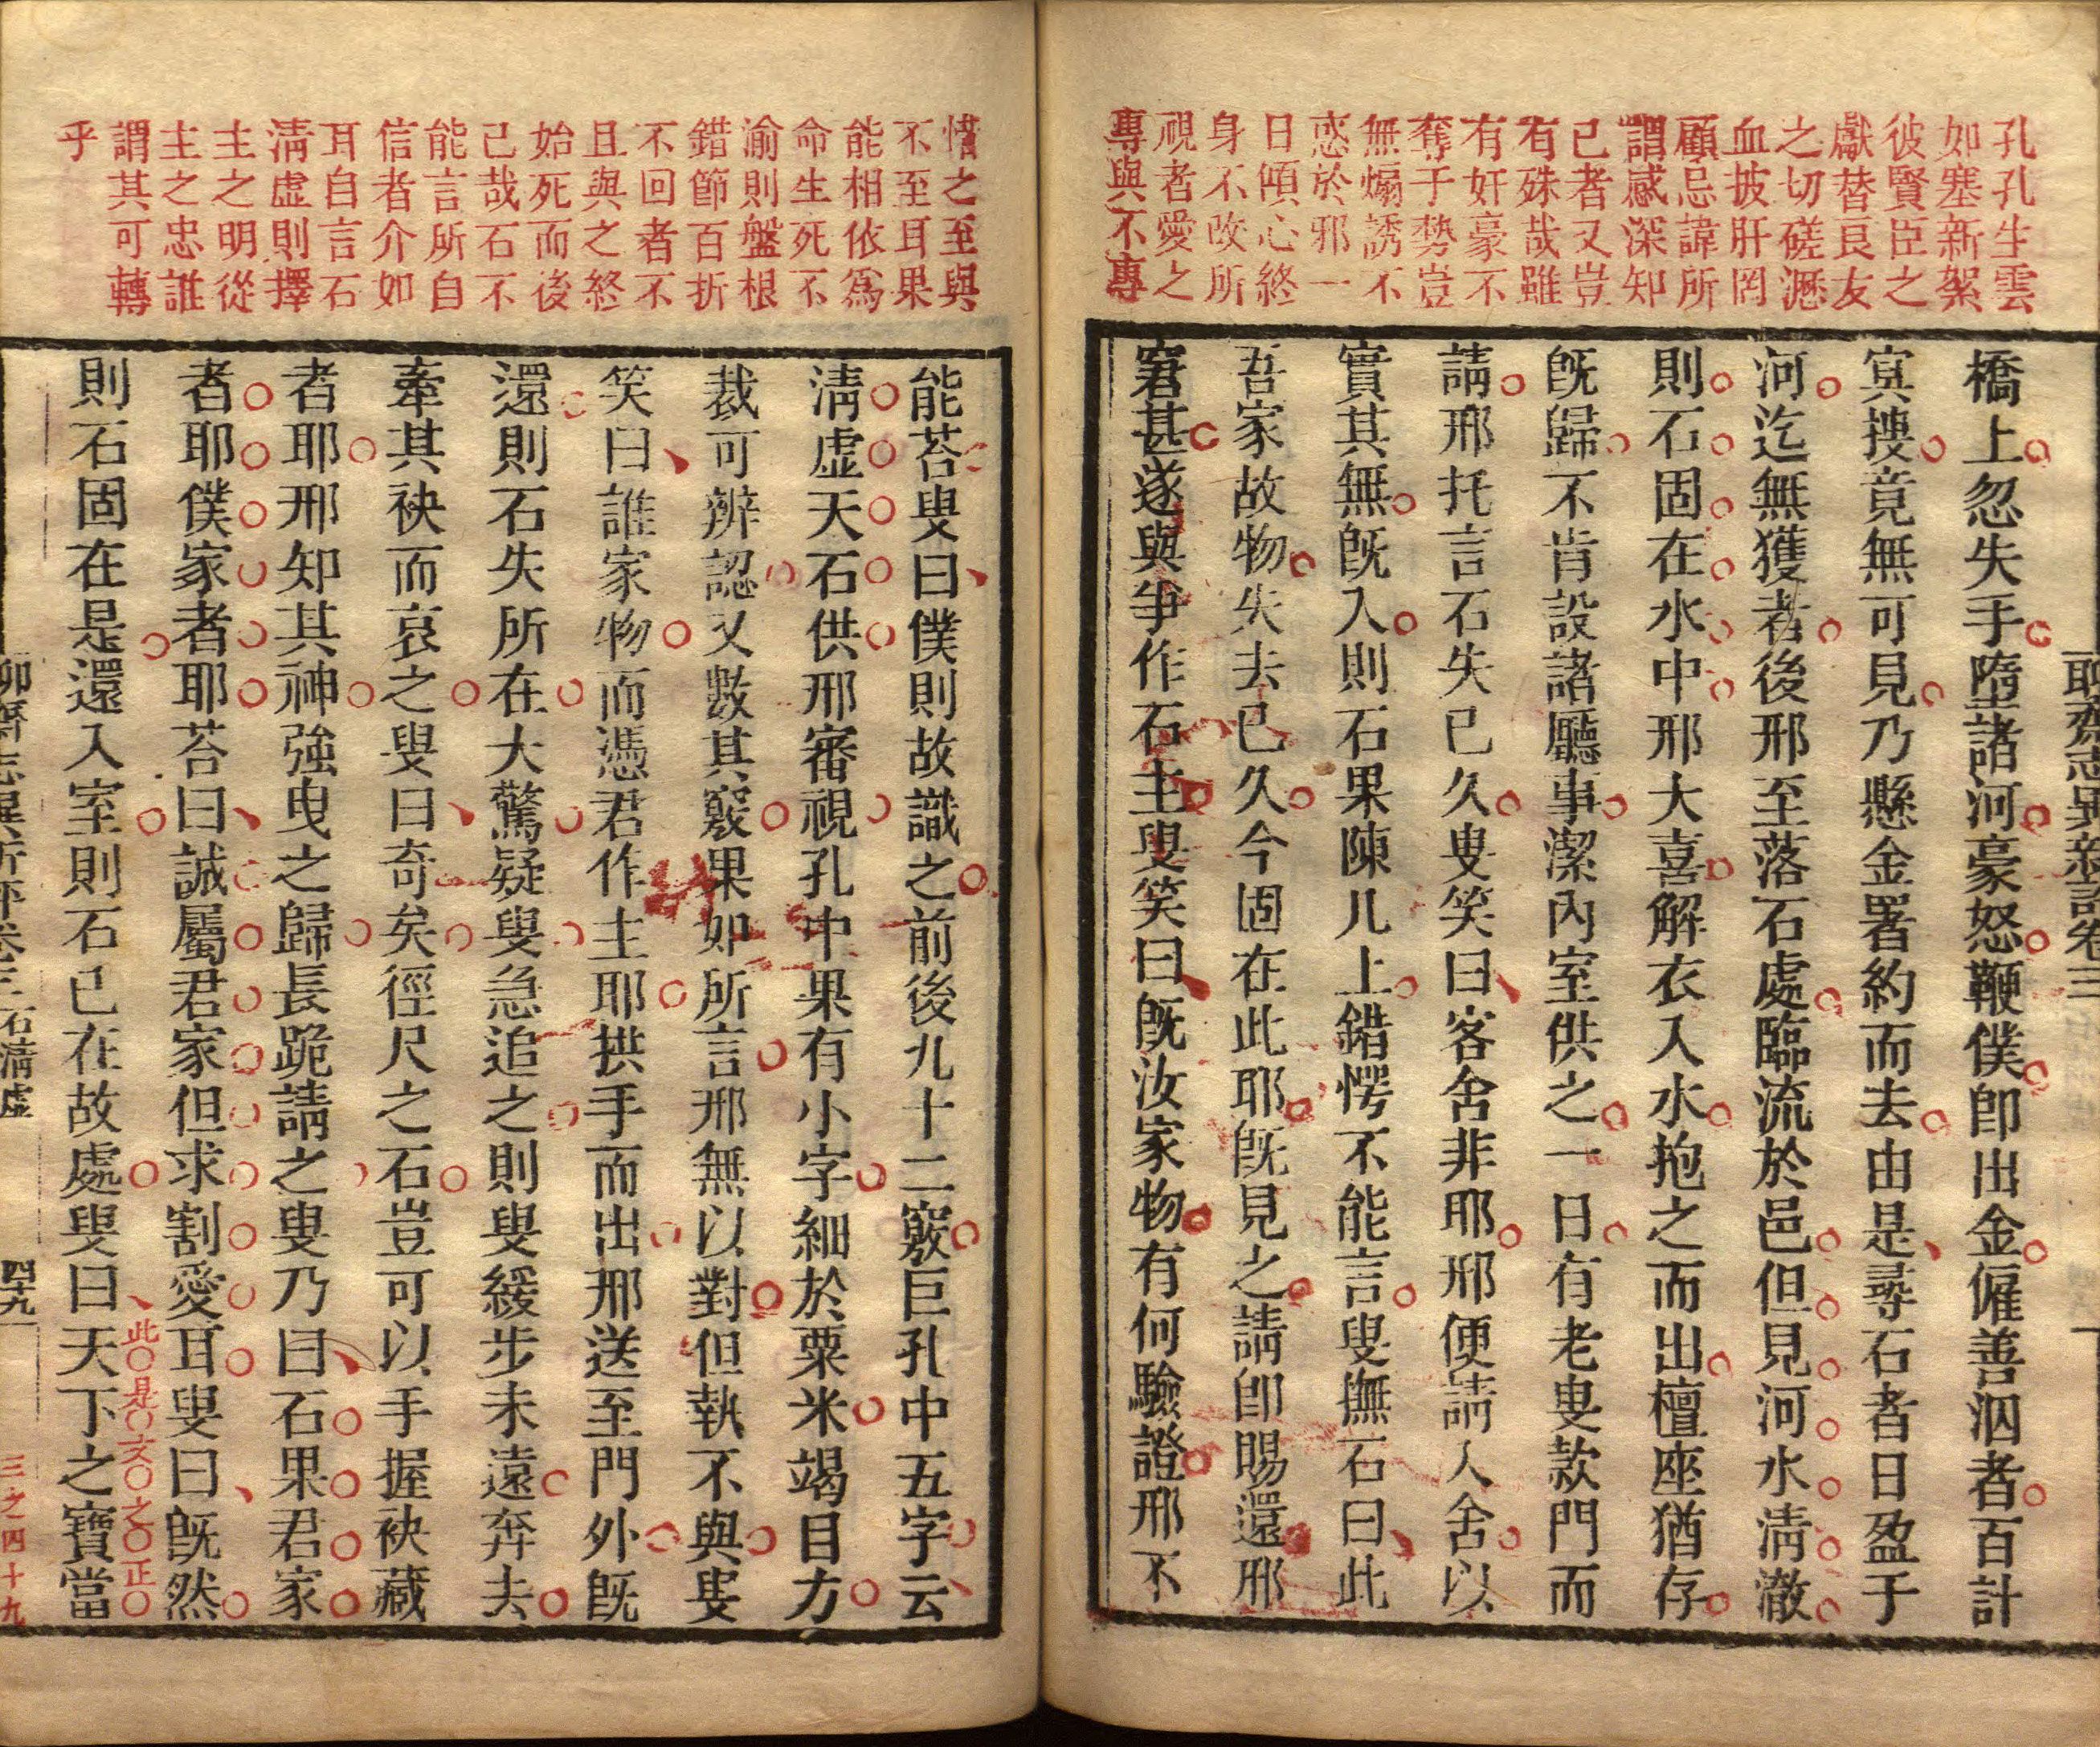 孔孔生雲
如塞新絮
彼賢臣之
獻替良友
之切磋瀝
血披肝罔
顧忌諱所
謂感深知
己者又豈
有殊哉雖
有奸豪不
奪于勢豈
無煽誘不
惑於邪一
日傾心終
身不改所
視者愛之
專與不專
聊齋志異新評卷三
橋上忽失手墮諸河豪怒鞭僕卽出金僱善泅者百計
寘搜竟無可見乃懸金署約而去由是尋石者日盈于
河迄無獲者後邢至落石處臨流於邑但見河水淸澈
則石固在水中邢大喜解衣入水抱之而出檀座猶存
旣歸不肯設諸廳事潔內室供之一日有老叟款門而
請邢托言石失已久叟笑曰客舍非耶邢便請入舍以
實其無旣入則石果陳几上錯愕不能言叟撫石曰此
吾家故物失去已久今固在此耶旣見之請卽賜還邢
窘甚遂與爭作石主叟笑曰旣汝家物有何驗證邢不
惜之至與
不至耳果
能相依爲
命生死不
渝則盤根
錯節百折
不回者不
且與之終
始死而後
已哉石不
能言所自
信者介如
耳自言石
淸虛則擇
主之明從
主之忠誰
謂其可轉
乎
能荅叟曰僕則故識之前後九十二竅巨孔中五字云
淸虛天石供邢審視孔中果有小字細於粟米竭目方
裁可辨認又數其竅果如所言邢無以對但執不與叟
笑曰誰家物而憑君作主耶拱手而出邢送至門外旣
還則石失所在大驚疑叟急追之則叟緩步未遠奔去
牽其袂而哀之叟曰奇矣徑尺之石豈可以手握袂藏
者耶邢知其神強曳之歸長跪請之叟乃曰石果君家
者耶僕家者耶荅曰誠屬君家但求割愛耳叟曰旣然
則石固在是還入室則石已在故處叟曰天下之寶當
此是文之正
聊齋志異新評卷三 石淸虛 四十九
三之四十九